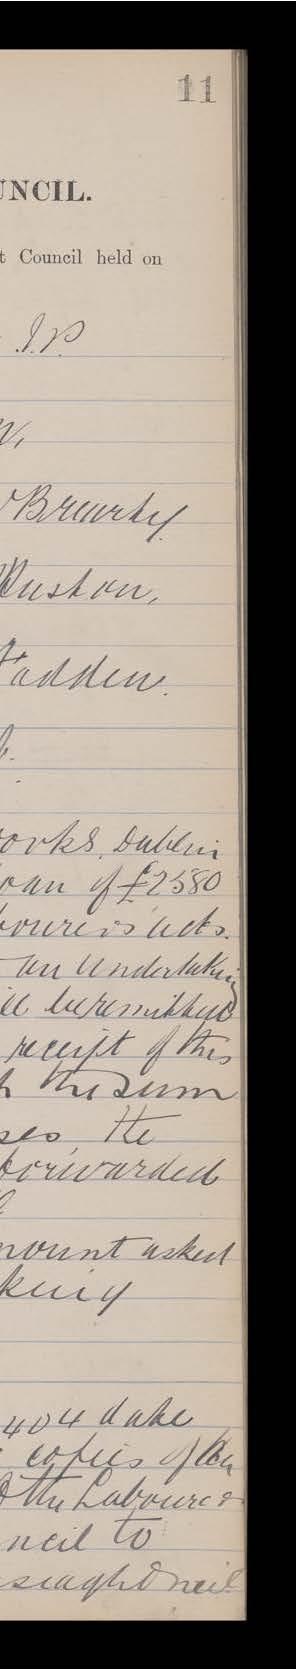 11
UNCIL.
t Council held on
J.P.
Brearty
Ruston,
Fadden.
orks, Dublin
oan of £2580
bourers acts.
an Undertaking
ill be remitted
receipt of this
h the sum
ses, the
forwarded
mount asked
king
404 date
copies of
the Labourers
ncil to